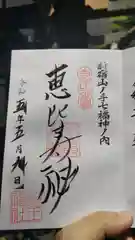 新宿山ノ手七福神ノ内
恵比寿神
令和五年五月九日